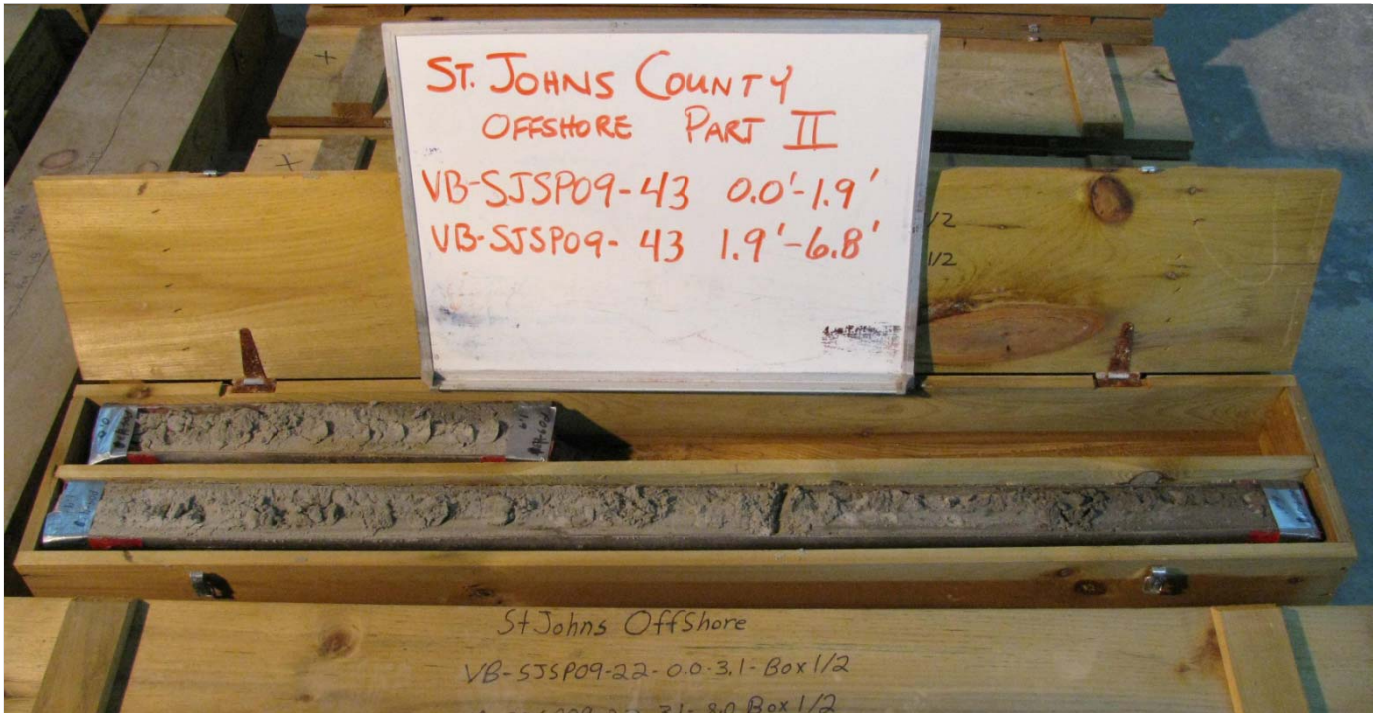 ST. JOHNS COUNTY
OFFSHORE PART II
VB-SJSP09-43 0.0'-1.9'
VB-SJSP09-43 1.9'-6.8'
1/2
1/2
0.0
1.9
St Johns OffShore
VB-SJSP09-22-0.0-3.1-Box 1/2
3.1-8.0 Box 1/2